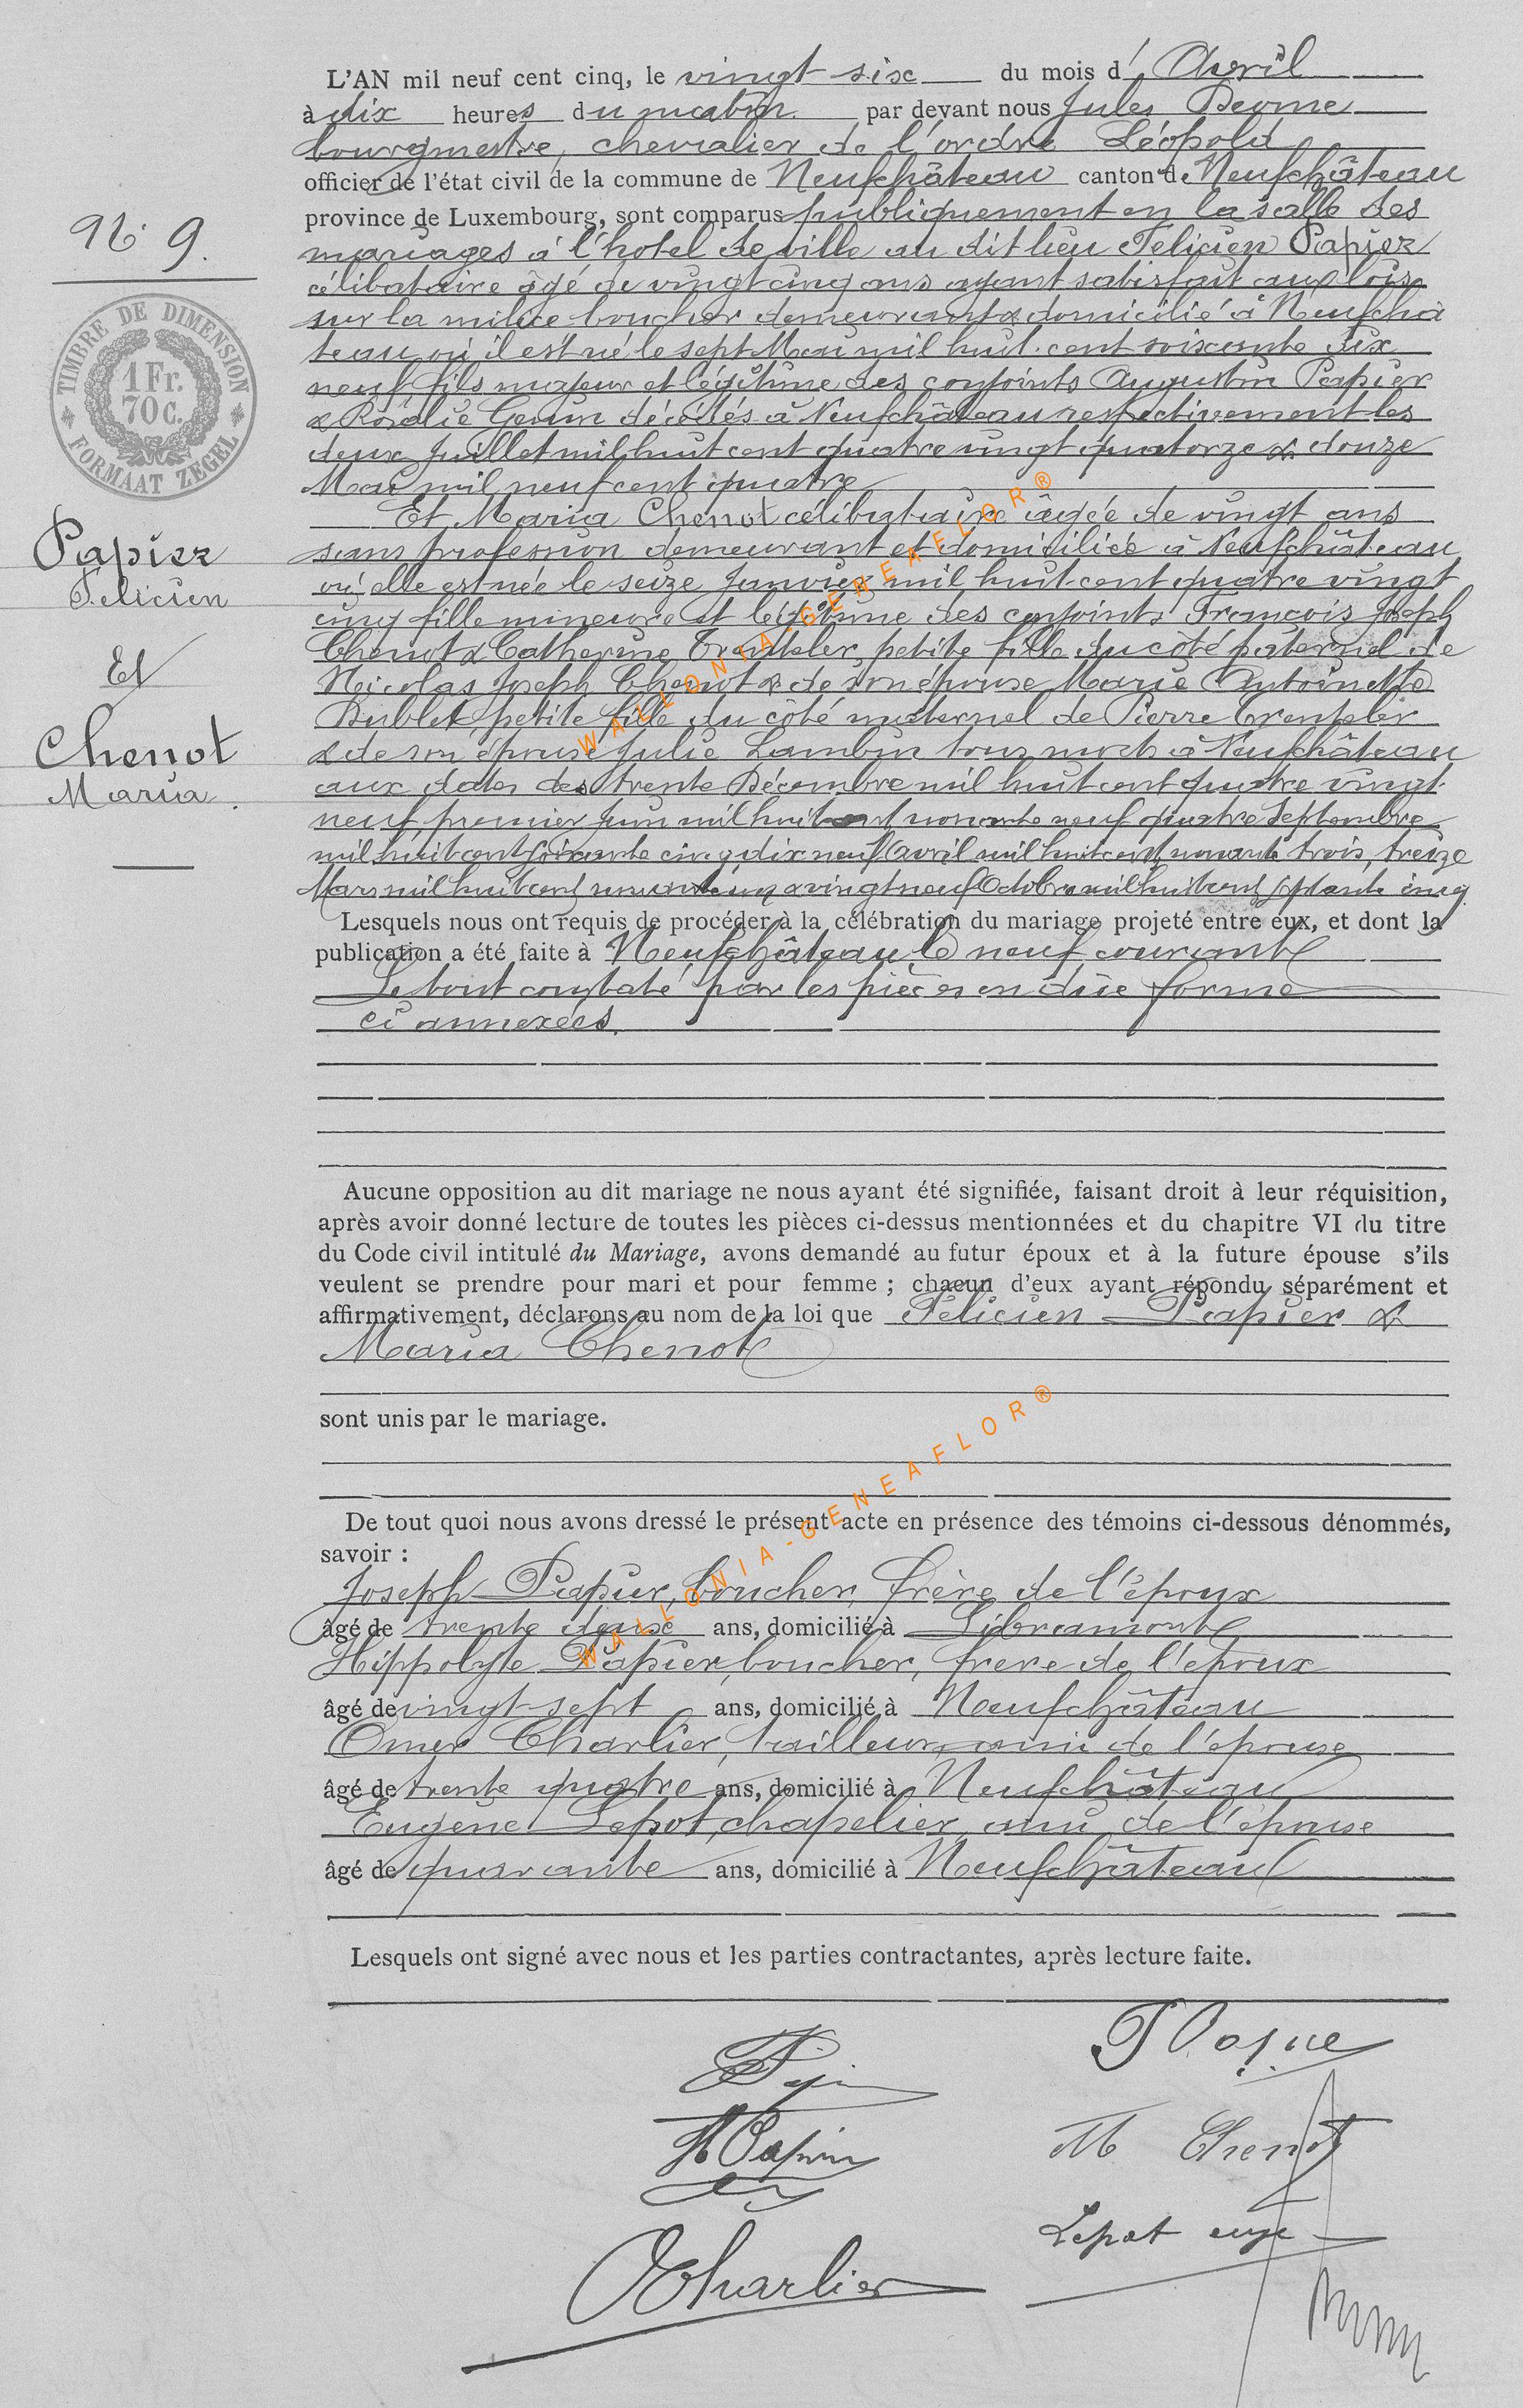 L'AN mil neuf cent cinq, le vingt-six du mois d'Avril
à dix heures du matin par devant nous Jules
bourgmestre, chevalier de l'ordre Léopold
officier de l'état civil de la commune de Neufchâteau canton de Neufchâteau
province de Luxembourg, sont comparus publiquement en la salle des
mariages à l'hotel de ville au dit lieu Félicien Papier
célibataire âgé de vingt cinq ans ayant satisfait aux lois
sur la milice boucher demeurant & domicilié à Neufchâ
teau où il est né le sept Mai mil huit cent soixante dix
neuf, fils majeur et légitime des conjoints Augustin Papier
& Rosalie décédés à Neufchâteau respectivement les
deux Juillet mil huit cent quatre vingt quatorze & douze
Mai mil neuf cent quatre
Et Maria Chenot célibataire âgée de vingt ans
sans profession demeurant et domiciliée à Neufchâteau
où elle est née le seize Janvier mil huit cent quatre vingt
cinq fille mineure et légitime des conjoints François Joseph
Chenot & Catherine petite fille du côté paternel de
Nicolas Joseph Chenot & de son épouse Marie Antoinette
petite fille du côté maternel de Pierre
& de son épouse Julie Lambin tous morts à Neufchâteau
aux dates des trente Décembre mil huit cent quatre vingt
neuf, premier Juin mil huit cent nonante neuf quatre Septembre
mil huit cent soixante cinq, dix neuf Avril mil huit cent nonante trois, treize
Mars mil huit cent & vingt neuf Octobre mil huit cent septante cinq
Lesquels nous ont requis de procéder à la célébration du mariage projeté entre eux, et dont la
publication a été faite à Neufchâteau le neuf courant
Le tout constaté par les pièces en due forme
ci annexées.
Aucune opposition au dit mariage ne nous ayant été signifiée, faisant droit à leur réquisition,
après avoir donné lecture de toutes les pièces ci-dessus mentionnées et du chapitre VI du titre
du Code civil intitulé du Mariage, avons demandé au futur époux et à la future épouse s'ils
veulent se prendre pour mari et pour femme ; chacun d'eux ayant répondu séparément et
affirmativement, déclarons au nom de la loi que Félicien Papier &
Maria Chenot
sont unis par le mariage.
De tout quoi nous avons dressé le présent acte en présence des témoins ci-dessous dénommés,
savoir :
Joseph Papier, boucher, frère de l'époux
âgé de trente deux ans, domicilié à Libramont
Hippolyte Papier, boucher, frere de l'epoux
âgé de vingt-sept ans, domicilié à Neufchâteau
Omer Charlier, tailleur, ami de l'epouse
âgé de trente quatre ans, domicilié à Neufchâteau
Eugène Lepot, chapelier, ami de l'epouse
âgé de quarante ans, domicilié à Neufchâteau
Lesquels ont signé avec nous et les parties contractantes, après lecture faite.
M Chenot
Lepot
OCharlier
No 9.
TIMBRE DE DIMENSION
1 Fr.
70 C.
FORMAAT ZEGEL
Papier
Felicien
Et
Chenot
Maria.
WALLONIA-GENEAFLOR®
WALLONIA-GENEAFLOR®